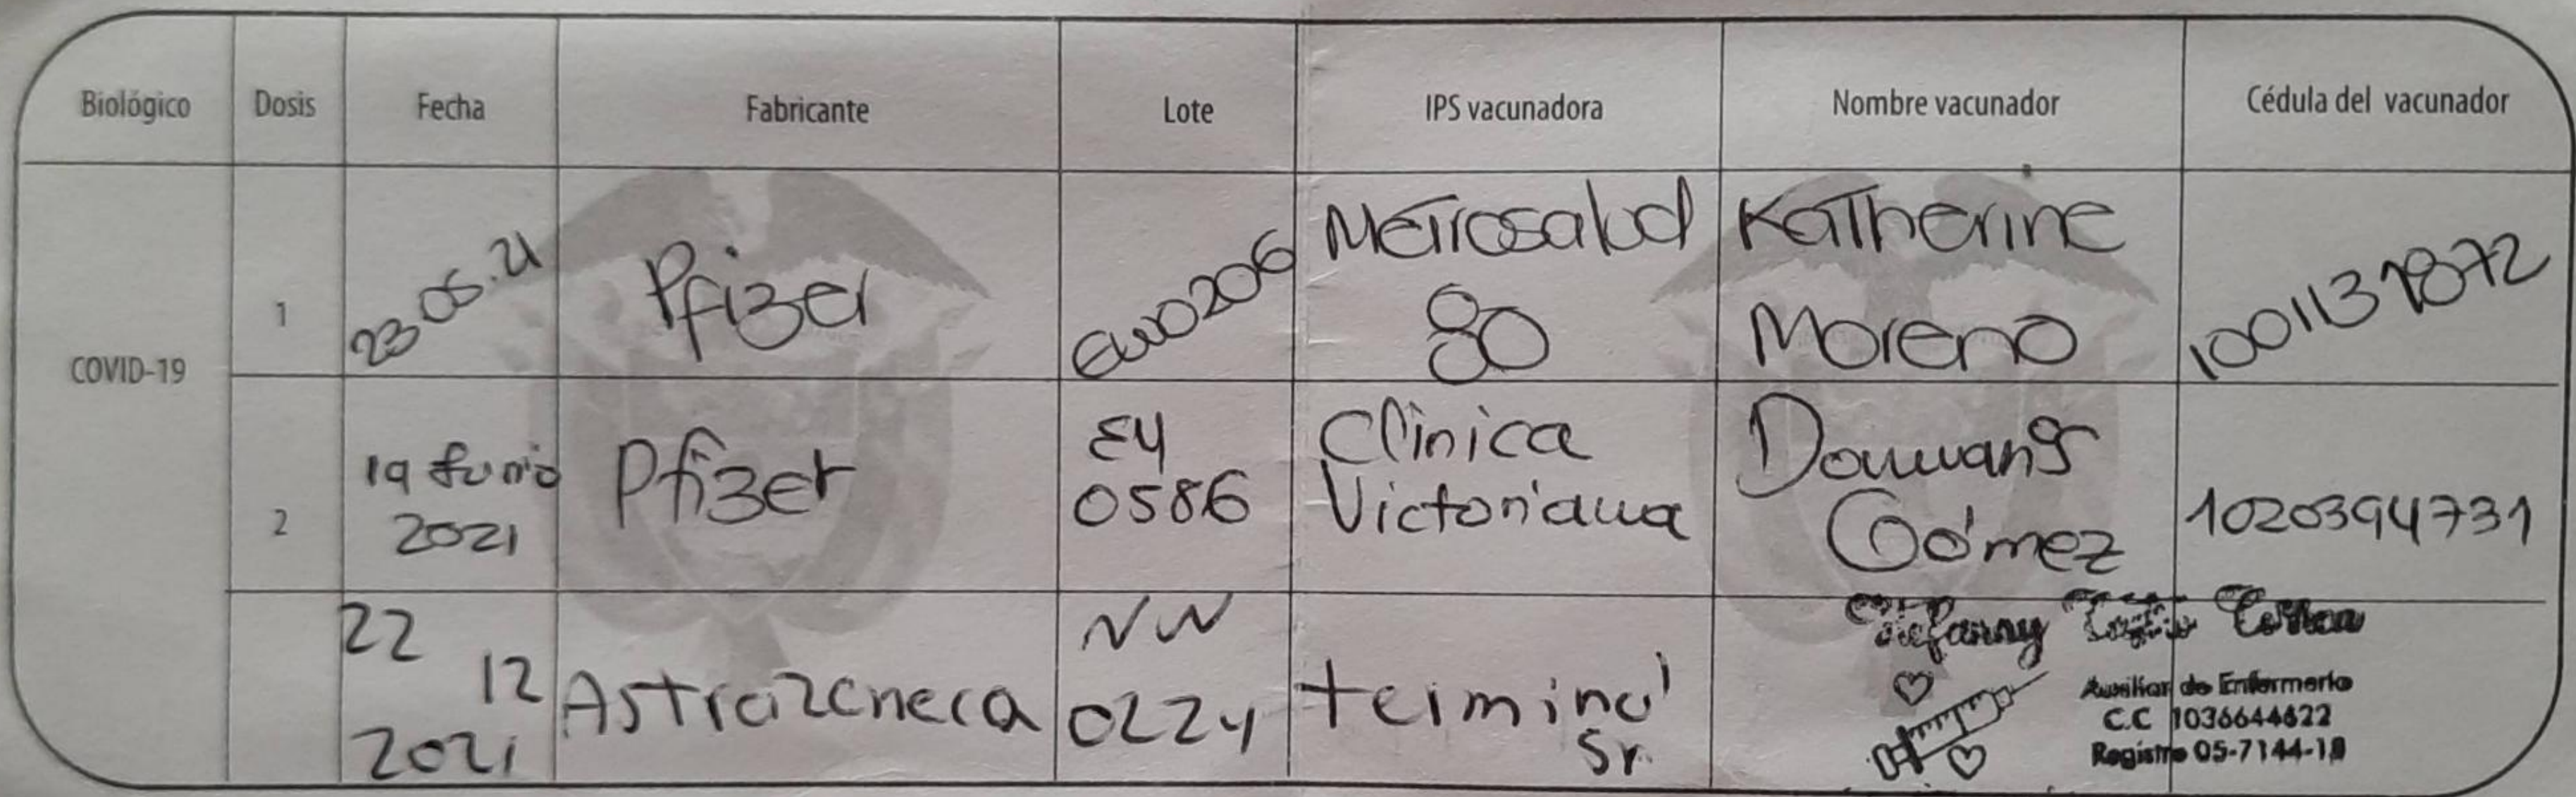 Biológico Dosis Fecha Fabricante Lote IPS vacunadora Nombre vacunador Cédula del vacunador
COVID-19
1 23 05.21 Pfizer EW0206 Metrosalud 80 Katherine Moreno
2 19 Junio 2021 Pfizer EY 0586 Clinica Victoriana Gómez 1020394731
22 12 2021 Astrazeneca NW 0224 terminal Sr.
Auxiliar de Enfermería
C.C 1036644622
Registro 05-7144-18